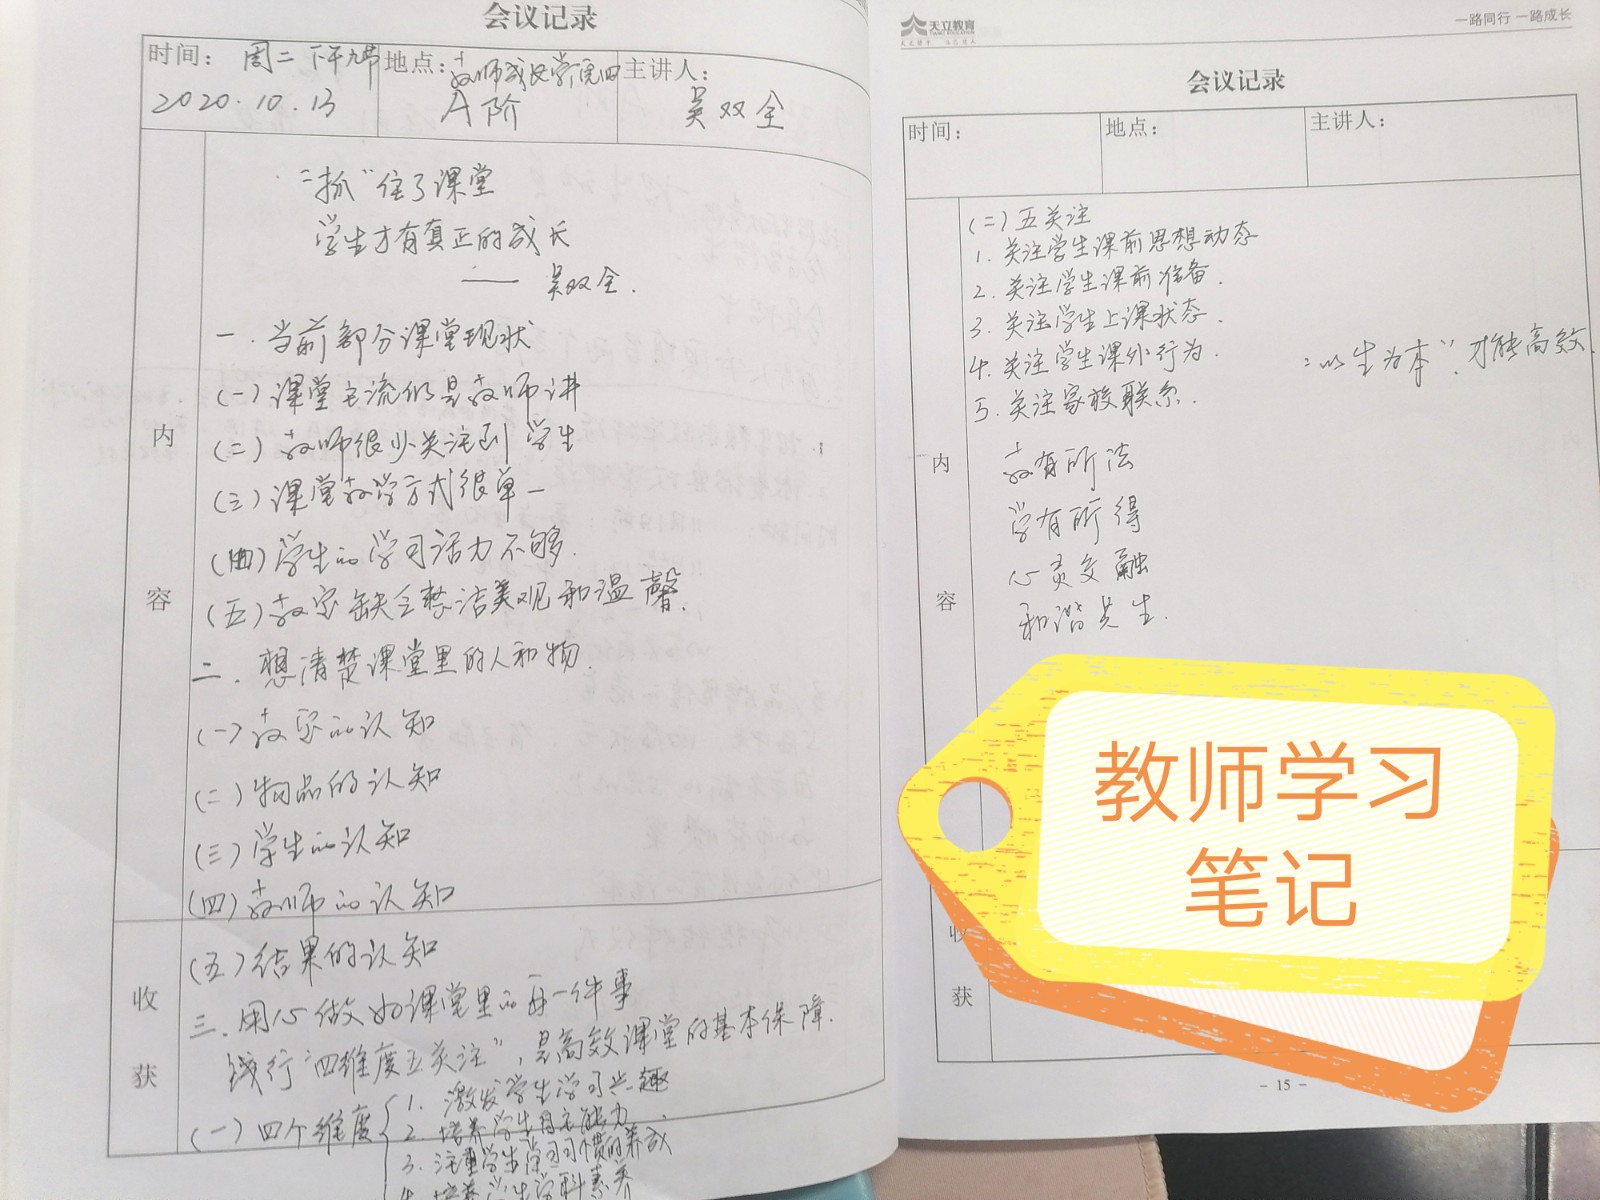 会议记录
时间： 周二下午九节
2020.10.13
地点： 教师成长学院四
A阶
主讲人：
吴双全
"抓"住了课堂
学生才有真正的成长
—— 吴双全.
内
容
一.当前部分课堂现状
(一)课堂主流仍是教师讲
(二)教师很少关注到学生
(三)课堂教学方式很单一
(四)学生的学习活力不够.
(五)教室缺乏整洁美观和温馨.
二.想清楚课堂里的人和物.
(一)教室的认知
(二)物品的认知
(三)学生的认知
(四)教师的认知
收
获
(五)结果的认知
三.用心做好课堂里的每一件事
践行"四维度五关注"，是高效课堂的基本保障.
(一)四个维度
1. 激发学生学习兴趣
2. 培养学生自主能力.
3. 注重学生学习习惯的养成
4. 培养学生学科素养
天立教育
TIANLI EDUCATION
一路同行 一路成长
会议记录
时间：
地点：
主讲人：
内
容
(二)五关注
1. 关注学生课前思想动态
2. 关注学生课前准备.
3. 关注学生上课状态.
4. 关注学生课外行为.
5. 关注家校联系.
"以生为本"，才能高效.
教有所法
学有所得
心灵交融
和谐共生.
收
获
- 15 -
教师学习
笔记